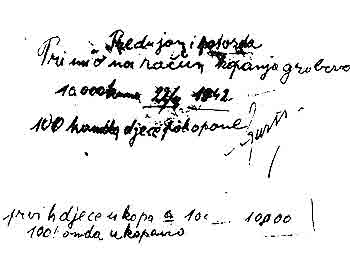 Predujam i potvrda
Primio na račun kopanja grobova
10.000 kuna 22/9 1942
100 komada djece pokopane
prvih djece ukopa 100 10000
100 onda ukopano